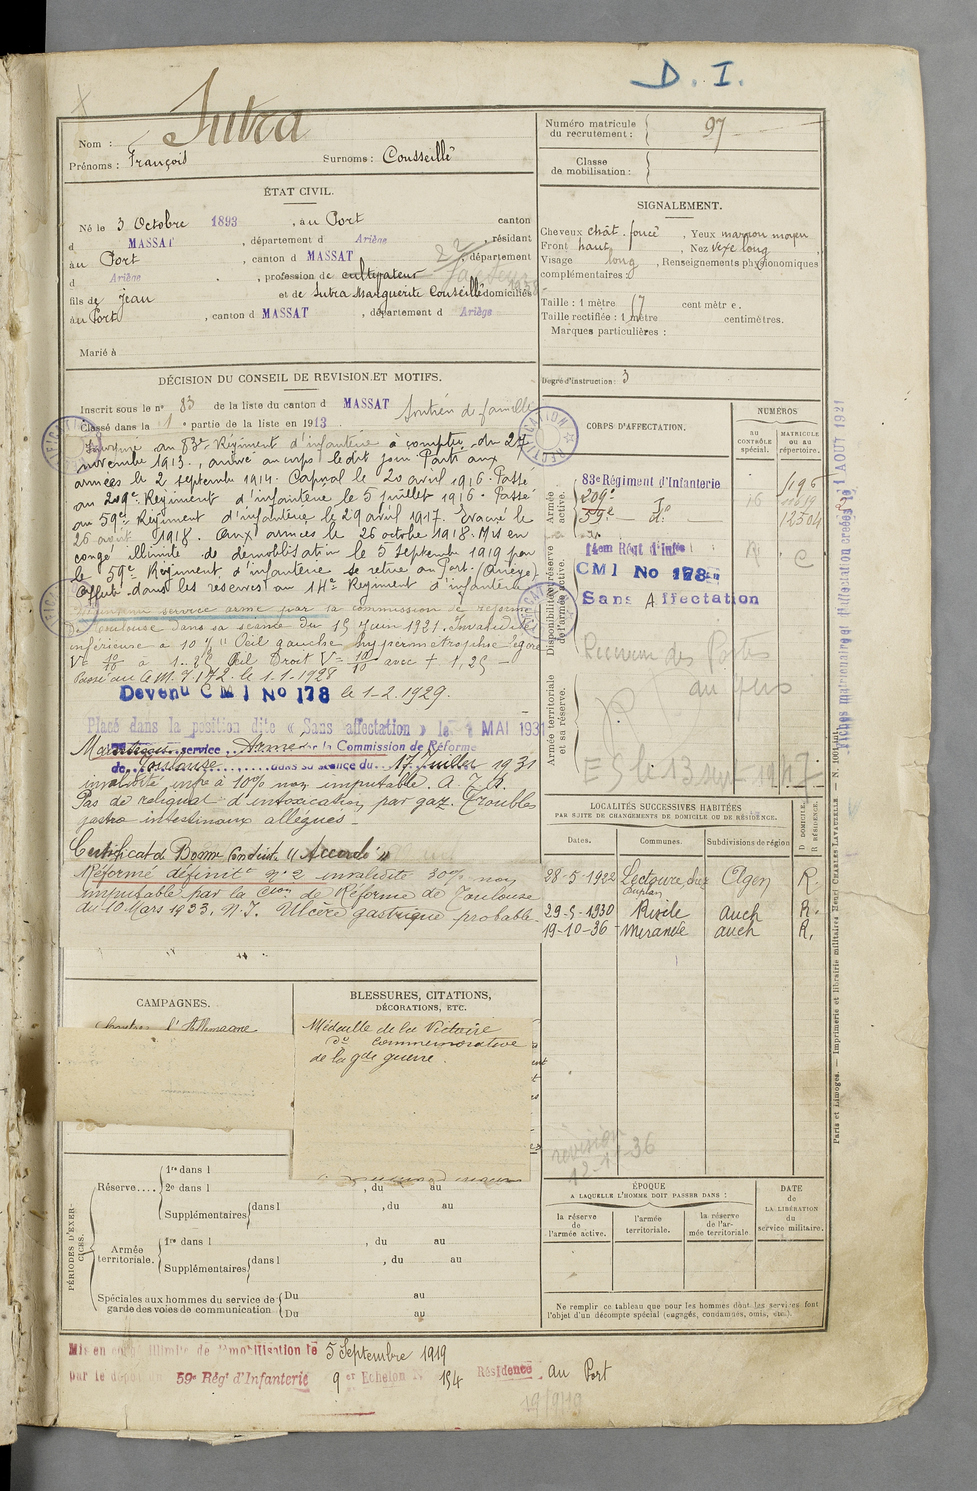 D. I.
Nom : Sutra
Prénoms : François Surnoms : Cousseillé
Numéro matricule du recrutement : 97
Classe de mobilisation :
ÉTAT CIVIL.
Né le 3 Octobre 1893, au Port canton
d MASSAT, département d Ariège, résidant
au Port, canton d MASSAT, département
d Ariège, profession de cultivateur
fils de Jean et de Sutra Marguerite Conseillé domiciliés
au Port, canton d MASSAT, département d Ariège
Marié à
SIGNALEMENT.
Cheveux chât. foncé, Yeux marron moyen
Front haut, Nez vexe long
Visage long, Renseignements physionomiques
complémentaires :
Taille : 1 mètre 67 centimètres.
Taille rectifiée : 1 mètre centimètres.
Marques particulières :
Degré d'instruction : 3
DÉCISION DU CONSEIL DE REVISION ET MOTIFS.
Inscrit sous le n° 83 de la liste du canton d MASSAT Soutien de famille
Classé dans la 1e partie de la liste en 1913
Incorporé au 83e Régiment d'infanterie à compter du 27
novembre 1913, arrivé au corps le dit jour. Parti aux
armées le 2 septembre 1914. Caporal le 20 avril 1916. Passé
au 209e Régiment d'infanterie le 5 juillet 1916. Passé
au 59e Régiment d'infanterie le 29 avril 1917. Evacué le
26 août 1918. Aux armées le 26 octobre 1918. Mis en
congé illimité de démobilisation le 5 Septembre 1919 par
le 59e Régiment d'infanterie se retire au Port. (Ariège)
Affecté dans les réserves au 14e Régiment d'infanterie
Maintenu service armé par la commission de réforme
De Toulouse dans sa séance du 15 Juin 1921. Invalidité
inférieure à 10 % "Oeil gauche hypermétrophie légère
V= 10/10 à 1.25 Œil Droit V= 10/10 avec + 1,25 —
Passé au C.M. I. 172. le 1.1.1928
Devenu CMI No 178 le 1-2.1929.
Placé dans la position dite « Sans affectation » le MAI 1931
Maintenu service Armé par la Commission de Réforme
de Toulouse dans sa séance du 17 Juillet 1931
invalidité infre à 10% non imputable. A. I. D.
Pas de reliquat d'intoxication par gaz. Troubles
gastro intestinaux allégués
Certificat de Bonne Conduite "Accordé"
Réformé définitt n° 2 invalidité 30% non
imputable par la Cion de Réforme de Toulouse
du 10 Mars 1933. N. I. Ulcère gastrique probable.
CORPS D'AFFECTATION.
NUMÉROS
AU CONTRÔLE SPÉCIAL.
MATRICULE OU AU RÉPERTOIRE.
Armée active.
83e Régiment d'Infanterie
209e
59e — do — 12504
Disponibilité et réserve de l'armée active.
14em Régt d'Infie
CMI No 178
Sans Affectation
Armée territoriale et sa réserve.
Receveur des Postes
au Gers
LOCALITÉS SUCCESSIVES HABITÉES
PAR SUITE DE CHANGEMENTS DE DOMICILE OU DE RÉSIDENCE.
Dates. Communes. Subdivisions de région D DOMICILE. R RÉSIDENCE.
28-5-1922 Lectoure, chez Agen R.
29-5-1930 Riscle Auch R.
19-10-36 Mirande auch R.
révision
CAMPAGNES.
Contre l'Allemagne
BLESSURES, CITATIONS,
DÉCORATIONS, ETC.
Médaille de la Victoire
do commémorative
de la gde guerre.
PÉRIODES D'EXERCICES.
Réserve.... 1re dans l
2e dans l , du au
Supplémentaires dans l , du au
Armée territoriale. 1re dans l , du au
Supplémentaires dans l , du au
Spéciales aux hommes du service de garde des voies de communication Du au
Du au
ÉPOQUE
A LAQUELLE L'HOMME DOIT PASSER DANS :
la réserve de l'armée active.
l'armée territoriale.
la réserve de l'armée territoriale
DATE de LA LIBÉRATION du service militaire.
Ne remplir ce tableau que pour les hommes dont les services font
l'objet d'un décompte spécial (engagés, condamnés, omis, etc.).
Paris et Limoges. — Imprimerie et librairie militaires Henri CHARLES-LAVAUZELLE
Mis en congé illimité de démobilisation le 5 Septembre 1919
par le dépôt du 59e Régt d'Infanterie 9e Echelon N° 154 Résidence au Port